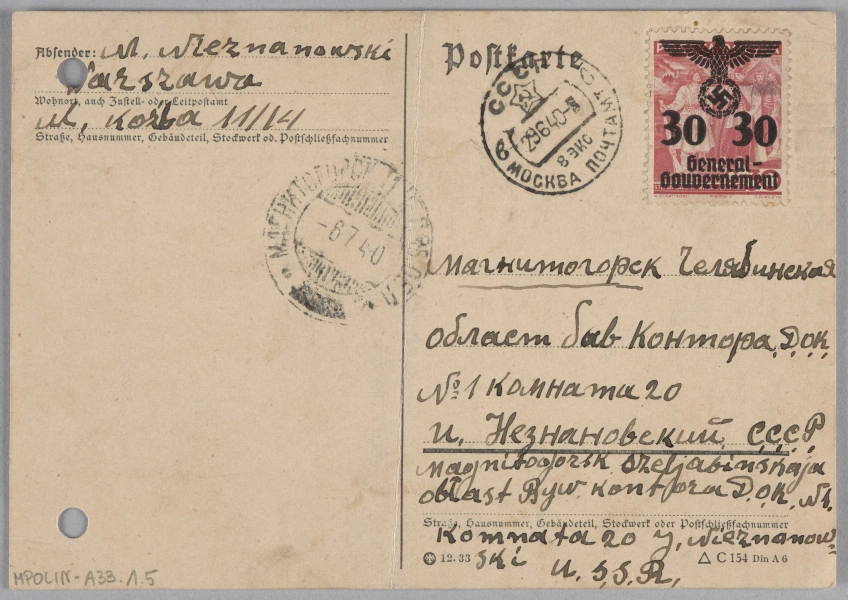 Absender: M. Nieznanowski
Warszawa
Wohnort, auch Zustell- oder Leitpostamt
M. Kozba 11/14
Straße, Hausnummer, Gebäudeteil, Stockwerk od. Postschließfachnummer
Postkarte
СССР
29640-8
8 ЭКС
8 МОСКВА ПОЧТАМТ
30 30
General-
Gouvernement
МАГНИТОГОРСК
-6740
Магнитогорск Челябинская
област бав Контора Д.О.К.
№1 комната 20
И. Незнановский С.С.С.Р
Magnitogorsk Czeljabinskaja
obłast Byw. kontora D.O.K. N1.
Straße, Hausnummer, Gebäudeteil, Stockwerk oder Postschließfachnummer
Komnata 20 J. Nieznanow-
ski
U.S.S.R.
12.33 C 154 Din A 6
MPOLIN-A33.1.5